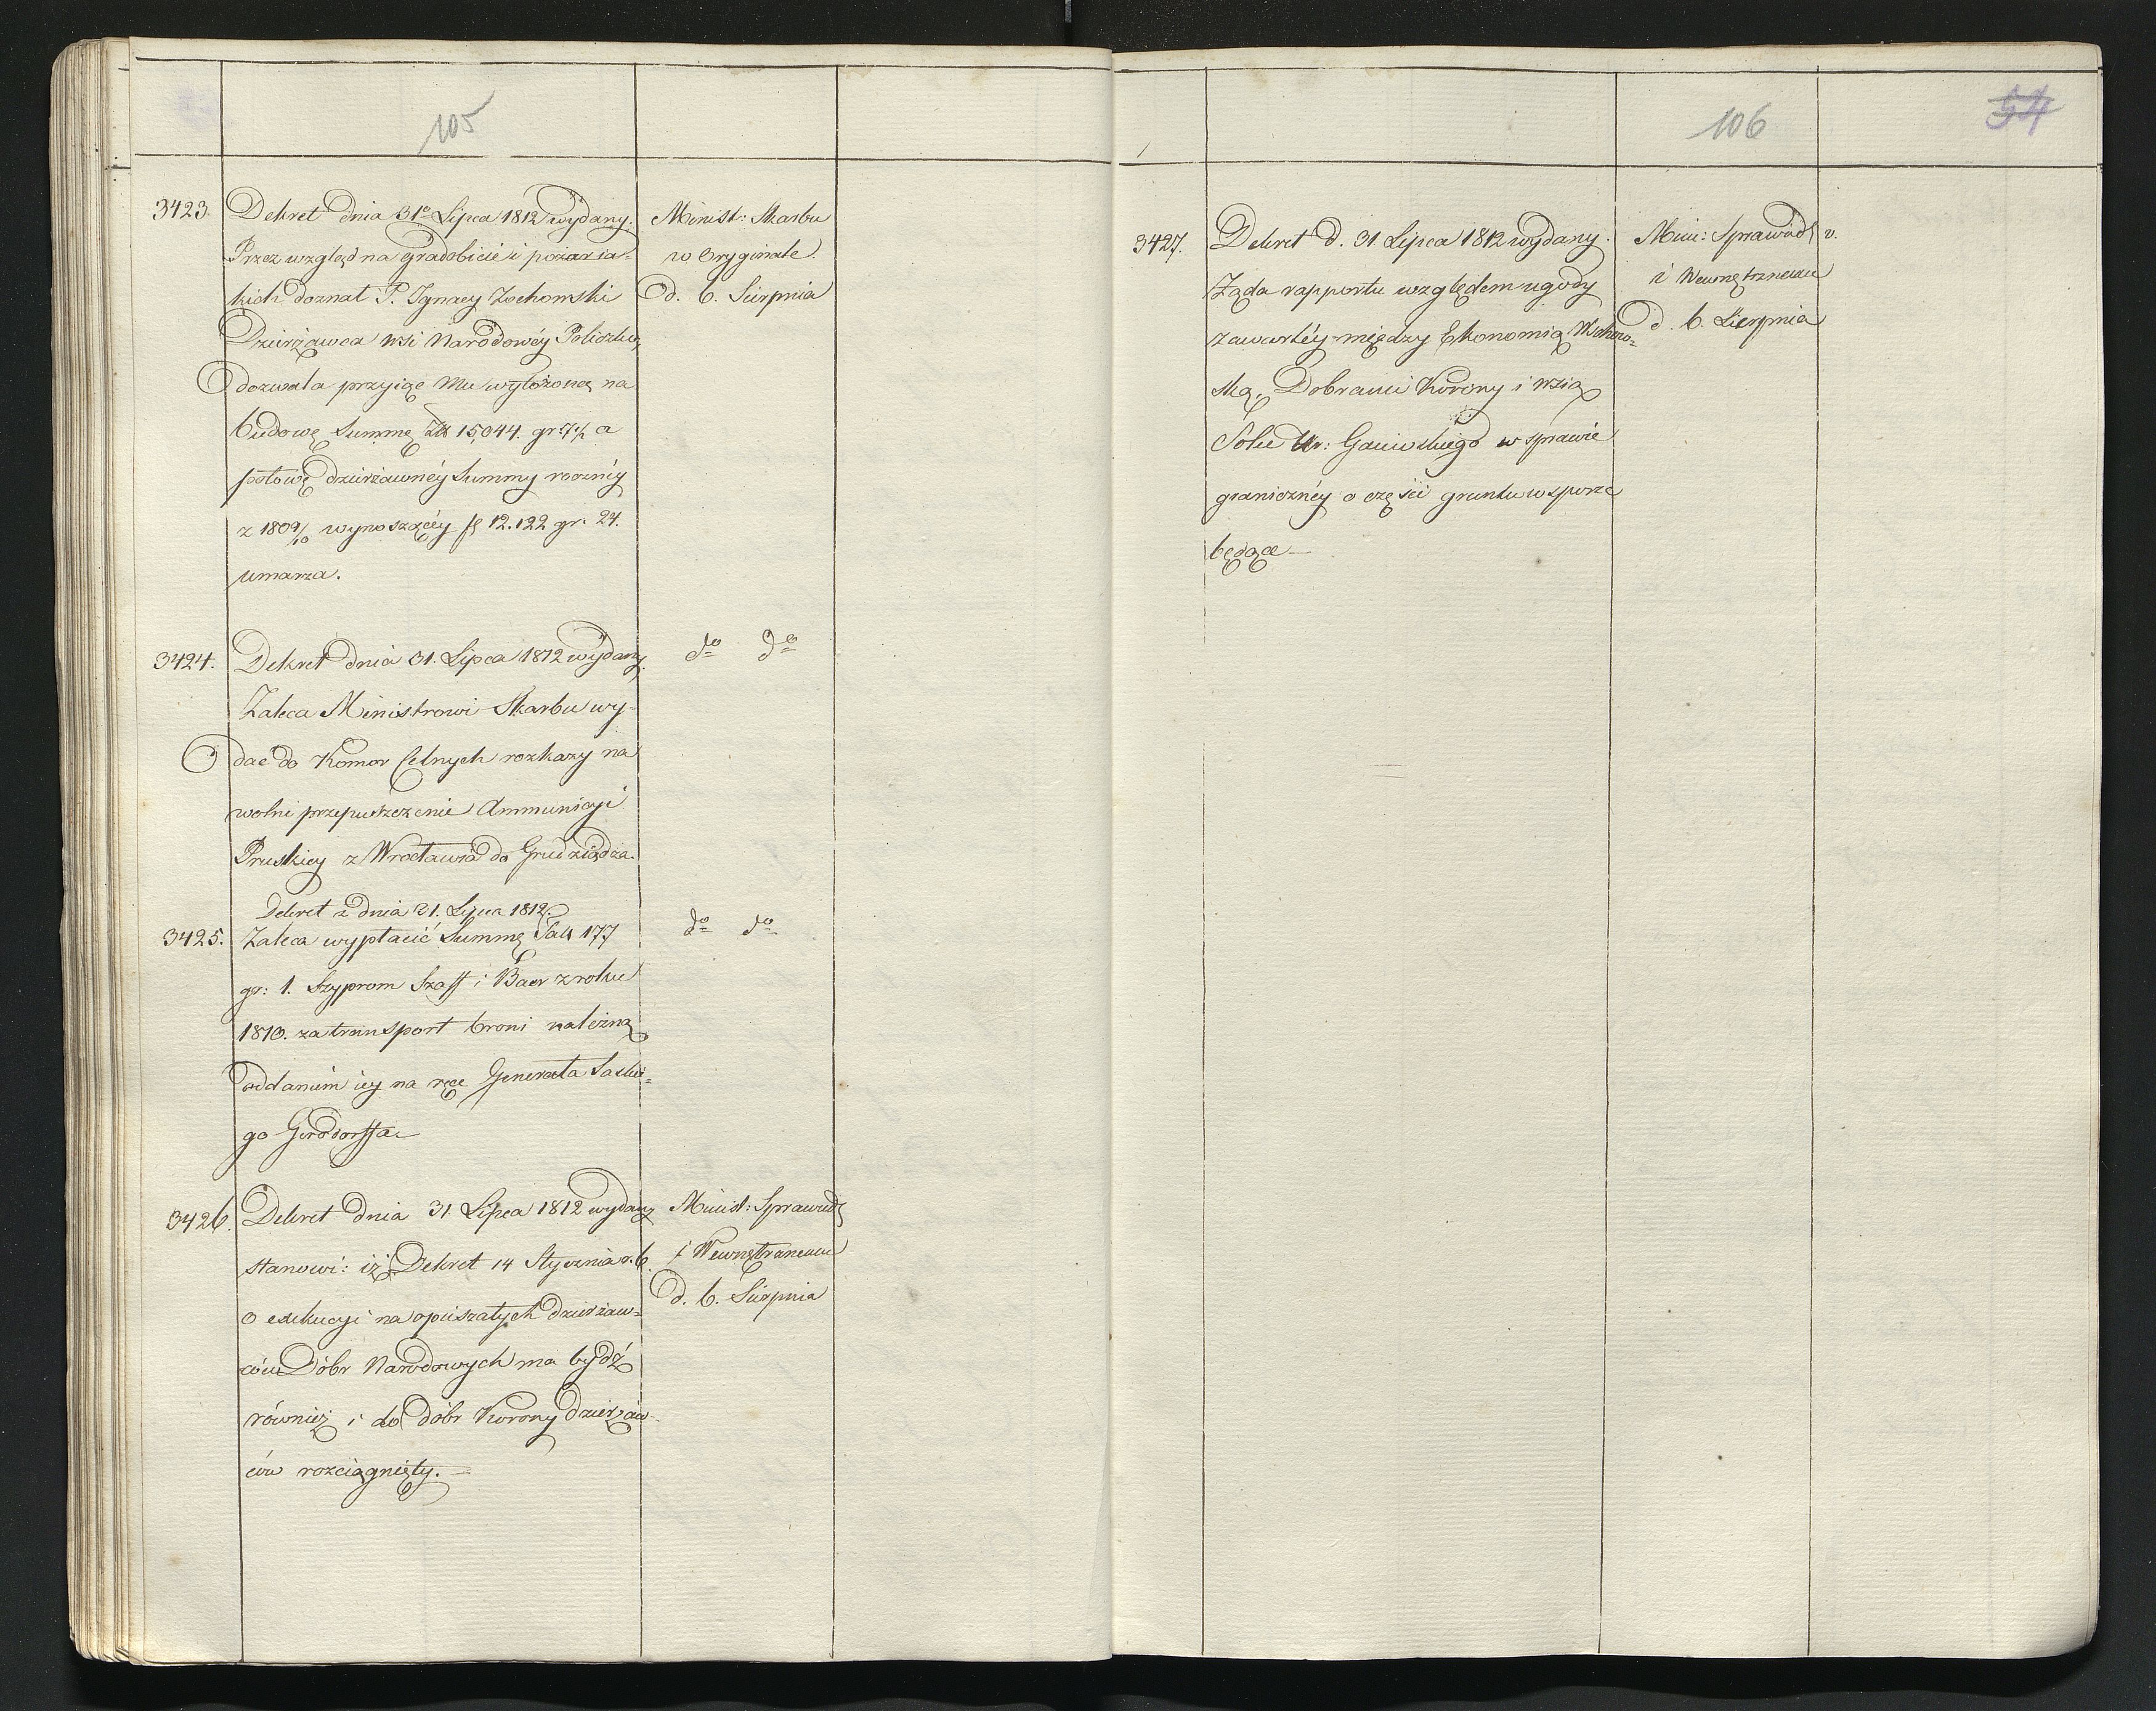 105
3423. Dekret dnia 31º Lipca 1812 wydany. Minist: Skarbu
Przez wzgląd na gradobicie i pożar ia- w Oryginale.
kich doznał P. Ignacy Zochowski d. 6. Sierpnia
Dzierżawca wsi Narodowéy
dozwala przyiąć Mu wyłożoną na
budowę Summę Złł 15,044. gr a
połowę dzierżawnéy Summy rocznéy
z 1809/10 wynoszącéy fl 12.122 gr: 24.
umarza.
3424. Dekret dnia 31. Lipca 1812 wydany. do do
Zaleca Ministrowi Skarbu wy-
dać do Komor Celnych rozkazy na
wolne przepuszczenie Ammunicyi
Pruskiey z Wrocławia do Grudziądza.
Dekret z dnia 31. Lipca 1812.
3425. Zaleca wypłacić Summę Tall 177 do do
gr: 1. Szyprom Szaff i Baer z roku
1810. za transport broni należną
oddaniem iey na ręce Generała Saskie-
go Gersdorffa
3426. Dekret dnia 31 Lipca 1812 wydany Minist: Sprawied
stanowi: iż Dekret 14 Stycznia r. b. i Wewnętrznemu
o exekucyi na opieszałych dzierżaw- d. 6. Sierpnia
ców Dóbr Narodowych ma bydź
również i do dóbr Korony dzierżaw-
ców rozciągnięty.
106
54
3427. Dekret d. 31 Lipca 1812 wydany. Mini: Sprawiedl
Żąda rapportu względem ugody i Wewnętrznemu
zawartéy między Ekonomią Wschow- d. 6. Sierpnia
ską, Dobrami Korony i wsią
Ur: w sprawie
granicznéy o części gruntu w sporze
będące